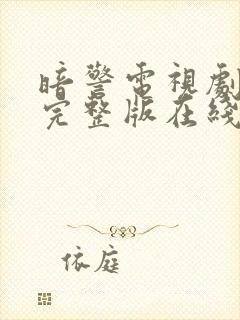 暗警電視劇
完整版在綫
依庭